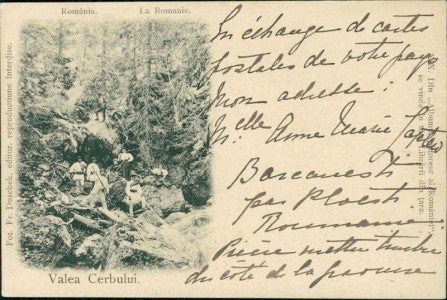 România.
La Romanie.
Fot. Fr. Duschek, editor. reproductiune interḑise.
Valea Cerbului.
En échange de cartes
postales de votre pays
Mon adresse :
Mlle Anne Marie
Barcanesti
par Ploesti
Roumanie
Prière mettre timbre
du côté de la